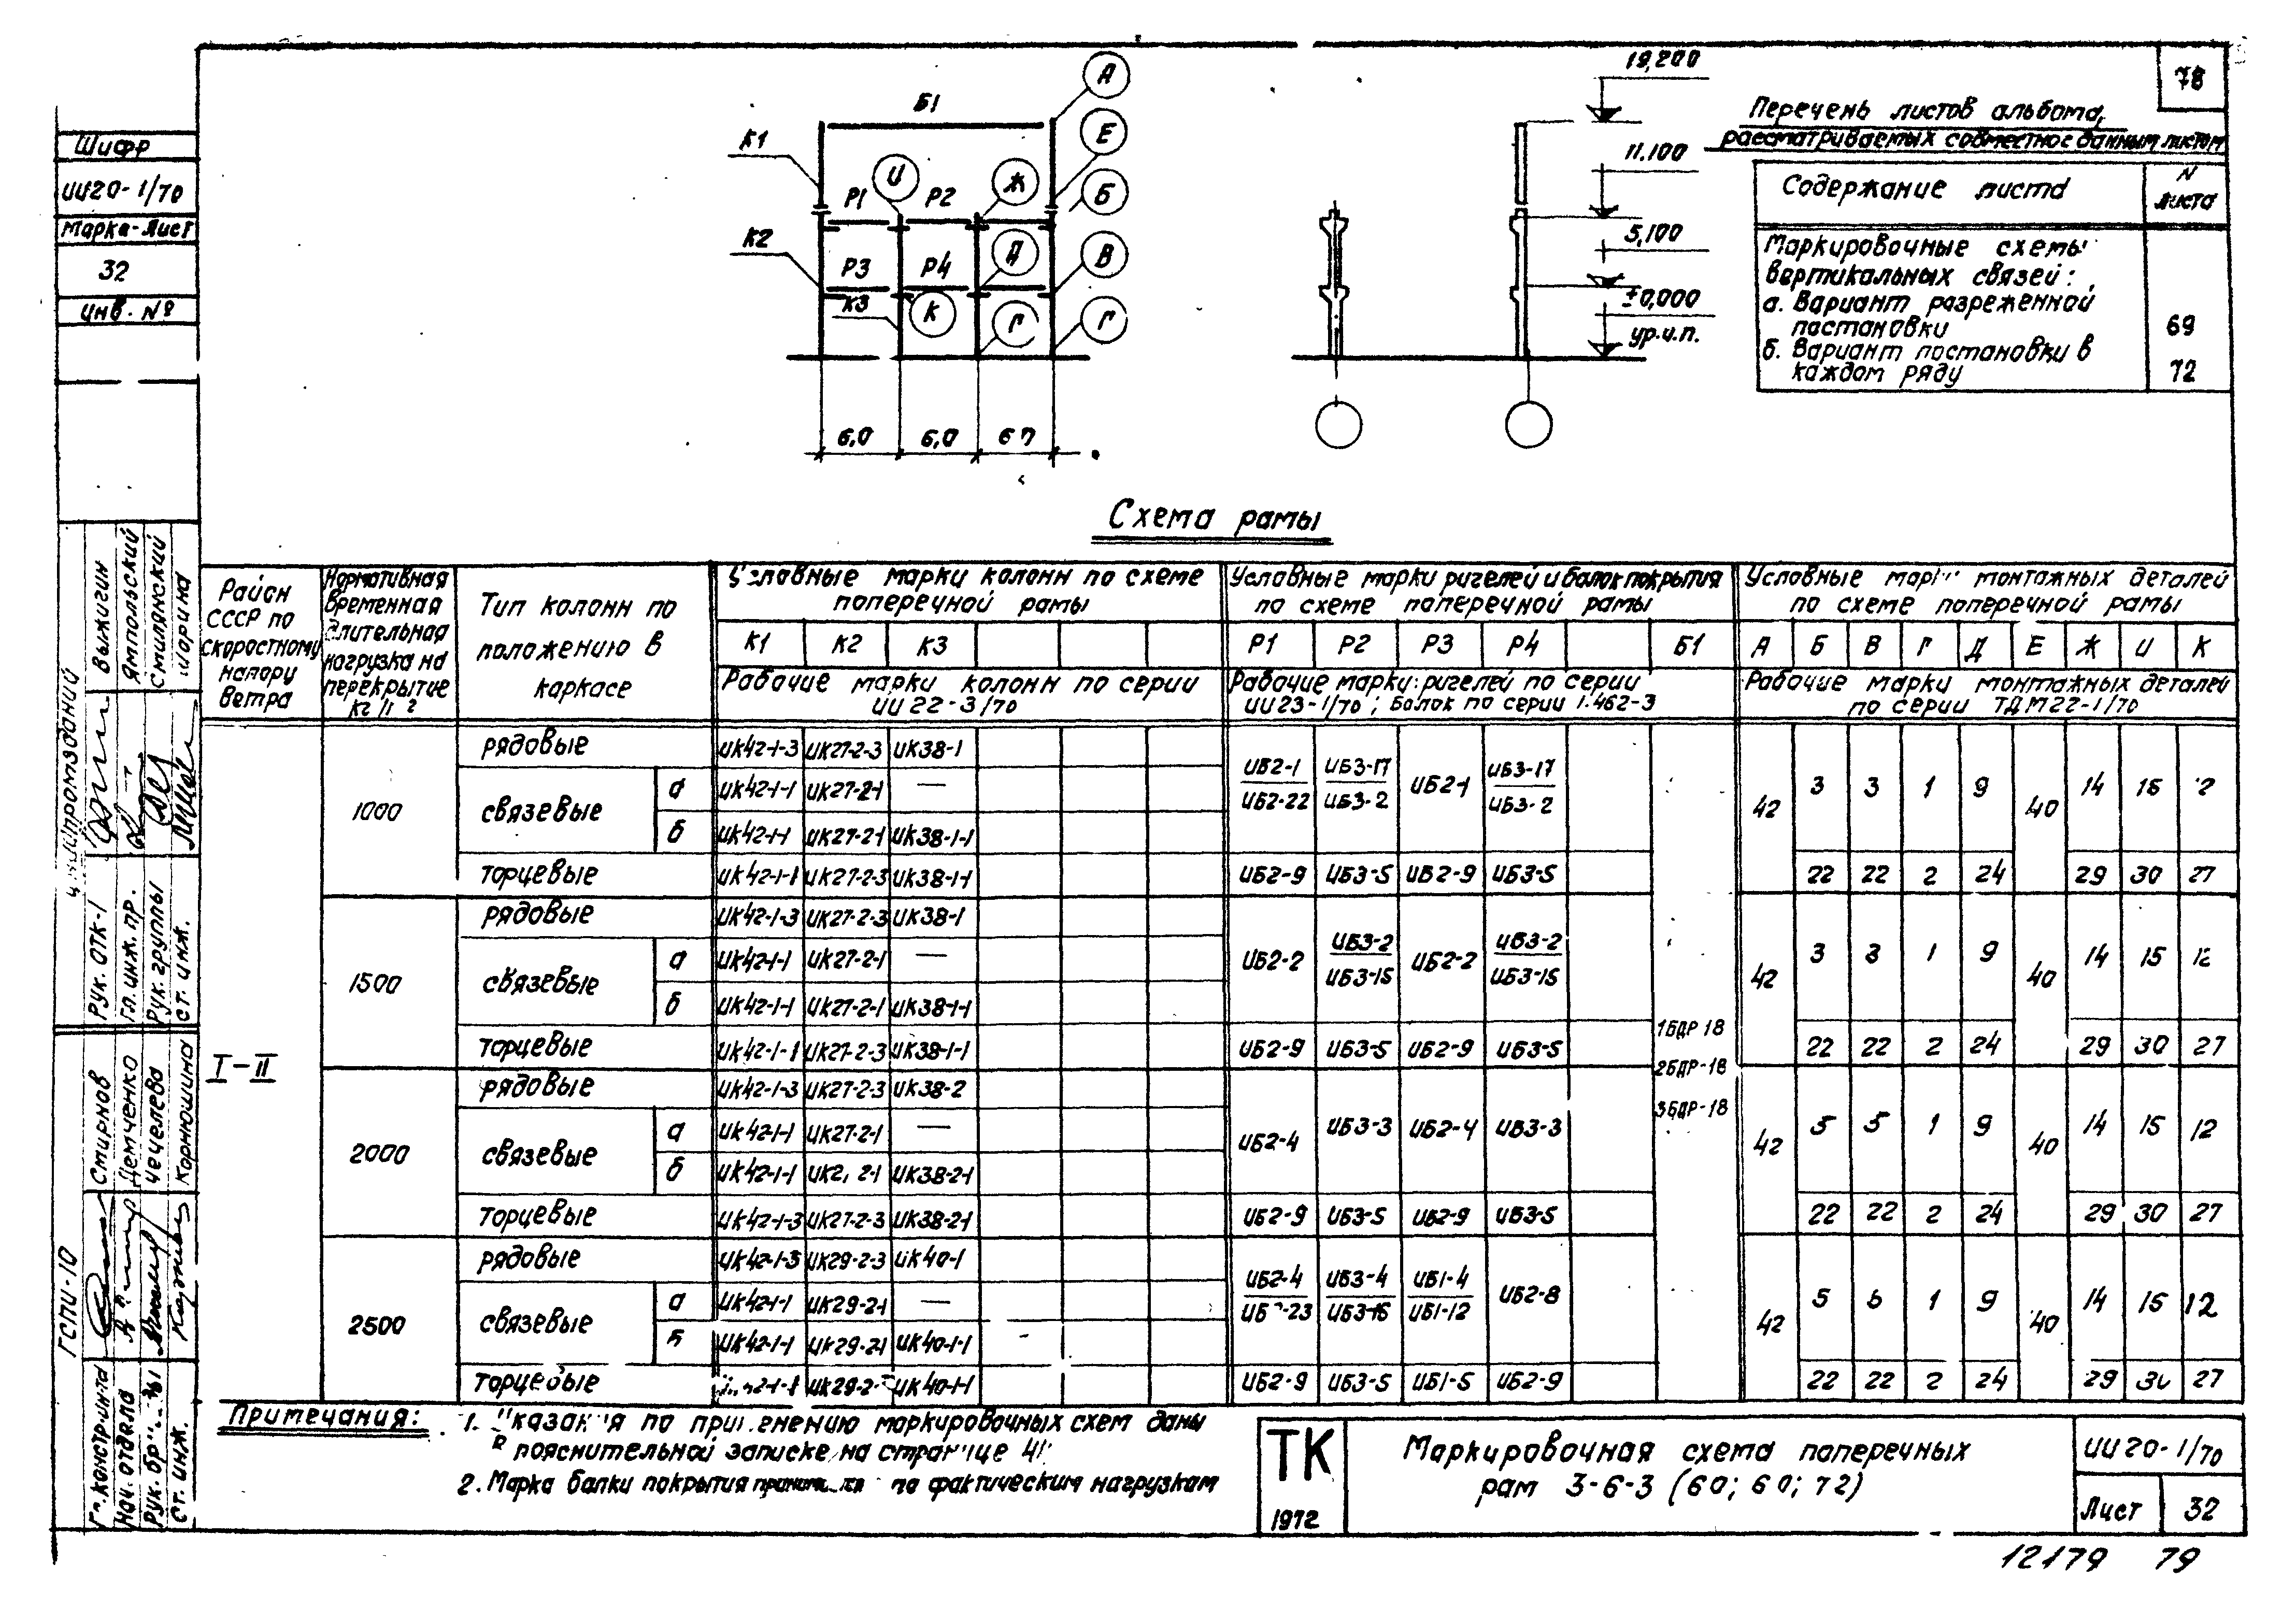 78
Перечень листов альбома,
рассматриваемых совместно с данным листом
Содержание листа
N листа
Маркировочные схемы
вертикальных связей:
а. Вариант разреженной
постановки
69
б. Вариант постановки в
каждом ряду
72
Шифр
ИИ20-1/70
Марка-лист
32
Инв. №
Б1
А
К1
Е
И
Ж
Р1
Р2
Б
К2
Р3
Р4
Д
В
К3
К
Г
Г
6,0
6,0
19,200
11.100
5,100
±0,000
ур.ч.п.
Схема рамы
Район
СССР по
скоростному
напору
ветра
Нормативная
временная
длительная
нагрузка на
перекрытие
Тип колонн по
положению в
каркасе
Условные марки колонн по схеме
поперечной рамы
К1 К2 К3
Рабочие марки колонн по серии
ИИ22-3/70
Условные марки ригелей и балок покрытия
по схеме поперечной рамы
Р1 Р2 Р3 Р4 Б1
Рабочие марки ригелей по серии
ИИ23-1/70; балок по серии 1.462-3
Условные марки монтажных деталей
по схеме поперечной рамы
А Б В Г Д Е Ж И К
Рабочие марки монтажных деталей
по серии ТДМ22-1/70
I-II
1000
рядовые ИК42-1-3 ИК27-2-3 ИК38-1
связевые
а ИК42-1-1 ИК27-2-1 —
б ИК42-1-1 ИК27-2-1 ИК38-1-1
ИБ2-1 ИБ3-17 ИБ2-1 ИБ3-17
ИБ2-22 ИБ3-2 ИБ3-2
42 3 3 1 9 40 14
торцевые ИК42-1-1 ИК27-2-3 ИК38-1-1 ИБ2-9 ИБ3-5 ИБ2-9 ИБ3-5 22 22 2 24 29 30 27
1500
рядовые ИК42-1-3 ИК27-2-3 ИК38-1
связевые
а ИК42-1-1 ИК27-2-1 —
б ИК42-1-1 ИК27-2-1 ИК38-1-1
ИБ2-2 ИБ3-2 ИБ2-2 ИБ3-2
ИБ3-15 ИБ3-15
42 3 3 1 9 40 14 15 12
торцевые ИК42-1-1 ИК27-2-3 ИК38-1-1 ИБ2-9 ИБ3-5 ИБ2-9 ИБ3-5 22 22 2 24 29 30 27
1БДР-18
2БДР-18
3БДР-18
2000
рядовые ИК42-1-3 ИК27-2-3 ИК38-2
связевые
а ИК42-1-1 ИК27-2-1 —
б ИК42-1-1 ИК38-2-1
ИБ2-4 ИБ3-3 ИБ2-4 ИБ3-3
42 5 5 1 9 40 14 15 12
торцевые ИК42-1-3 ИК27-2-3 ИК38-2-1 ИБ2-9 ИБ3-5 ИБ2-9 ИБ3-5 22 22 2 24 29 30 27
2500
рядовые ИК42-1-3 ИК29-2-3 ИК40-1
связевые
а ИК42-1-1 ИК29-2-1 —
б ИК42-1-1 ИК29-2-1 ИК40-1-1
ИБ2-4 ИБ3-4 ИБ1-4 ИБ2-8
ИБ3-16 ИБ1-12
42 5 1 9 40 14 15 12
торцевые ИК40-1-1 ИБ2-9 ИБ3-5 ИБ1-5 ИБ2-9 22 22 2 24 29 30 27
Примечания:
1. Указания по применению маркировочных схем даны
в пояснительной записке на странице
2. Марка балки покрытия по фактическим нагрузкам
ТК
1972
Маркировочная схема поперечных
рам 3-6-3 (60; 60; 72)
ИИ20-1/70
Лист 32
12179 79
Рук. ОТК-1 Выжигин
Гл. инж. пр. Ямпольский
Рук. группы Смилянский
Ст. инж. Шорина
ГСПИ-10
Смирнов
Нач. отдела Демченко
Чечелева
Ст. инж. Корнюшина